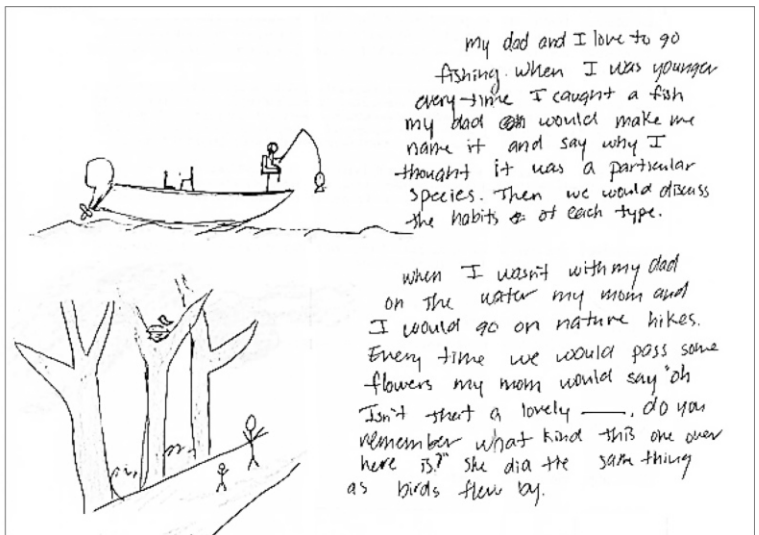 my dad and I love to go
fishing. when I was younger
every time I caught a fish
my dad would make me
name it and say why I
thought it was a particular
species. Then we would discuss
the habits of each type.
when I wasn't with my dad
on the water my mom and
I would go on nature hikes.
Every time we would pass some
flowers my mom would say "oh
Isn't that a lovely ——, do you
remember what kind this one over
here is?" she did the same thing
as birds flew by.